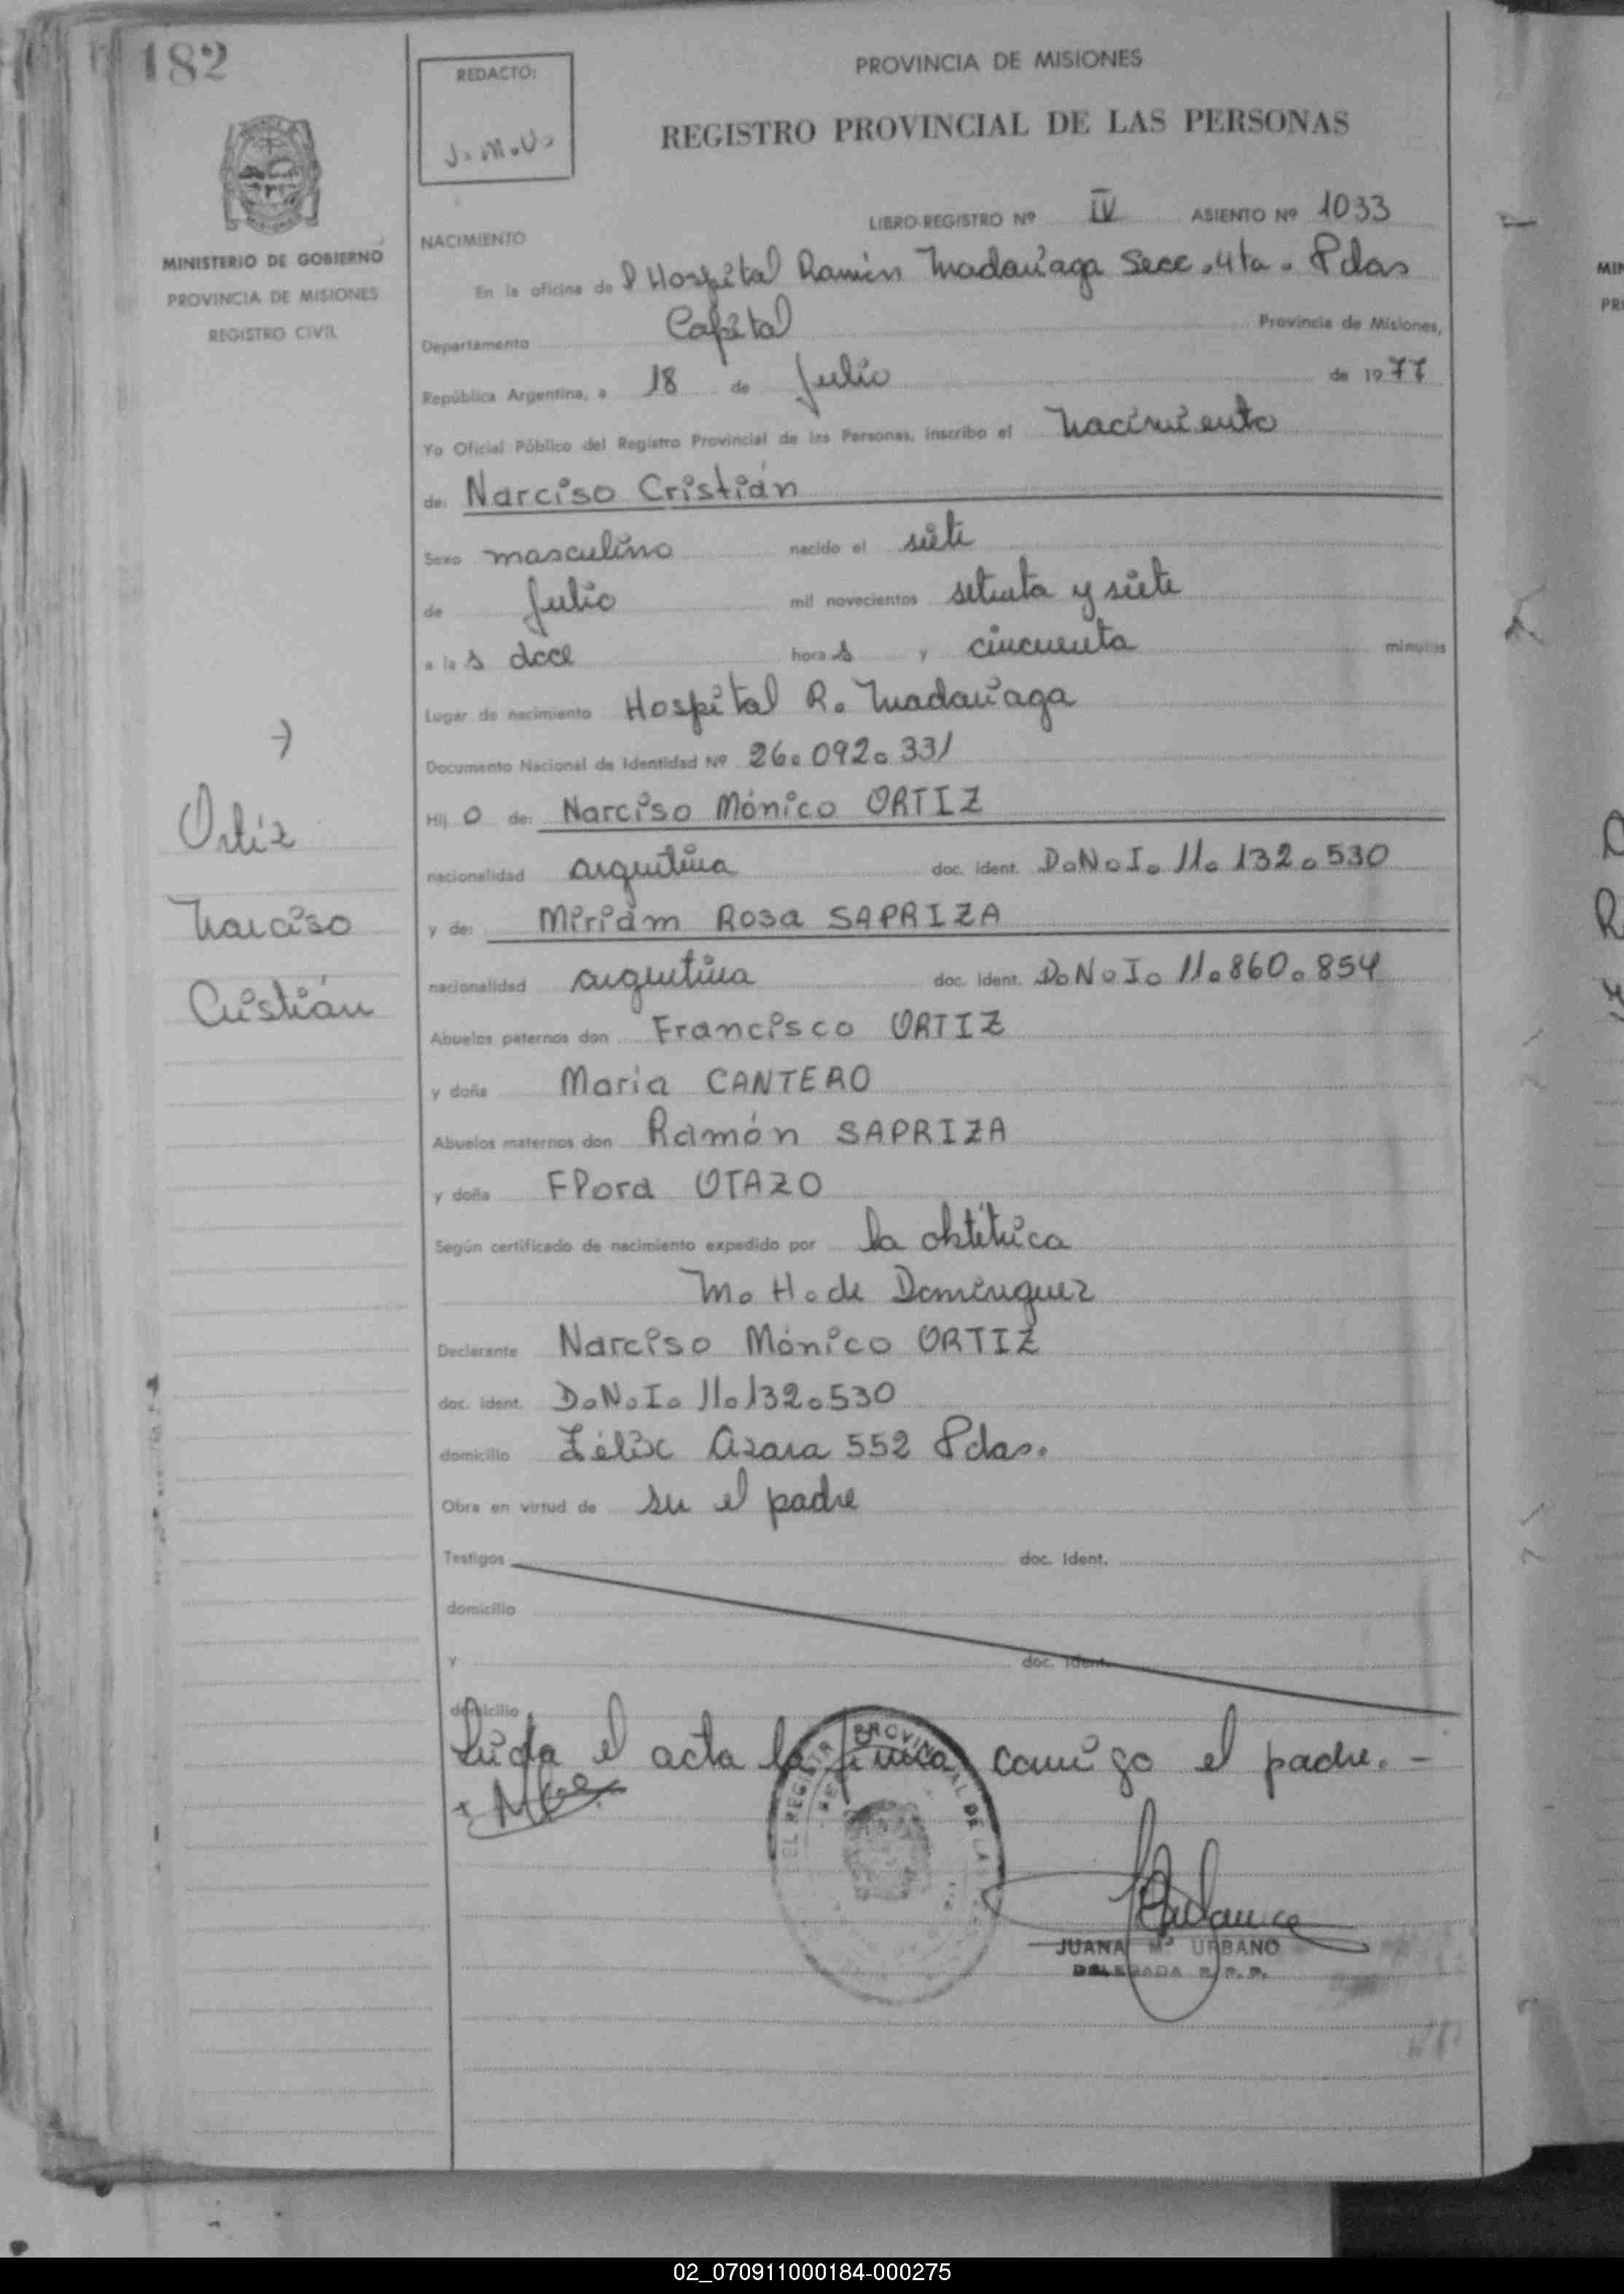 182
REDACTO:
J.M.U.
PROVINCIA DE MISIONES
REGISTRO PROVINCIAL DE LAS PERSONAS
MINISTERIO DE GOBIERNO
PROVINCIA DE MISIONES
REGISTRO CIVIL
LIBRO-REGISTRO Nº IV ASIENTO Nº 1033
NACIMIENTO
En la oficina de l Hospital Ramón Madariaga Secc. 4ta. Pdas
Departamento Capital Provincia de Misiones,
República Argentina, a 18 de Julio de 1977
Yo Oficial Público del Registro Provincial de las Personas, inscribo el Nacimiento
de: Narciso Cristián
Sexo masculino nacido el siete
de Julio mil novecientos setenta y siete
a las doce horas y cincuenta minutos
Lugar de nacimiento Hospital R. Madariaga
Documento Nacional de Identidad Nº 26.092.331
Hijo de: Narciso Mónico ORTIZ
nacionalidad argentina doc. ident. D.N.I. 11.132.530
y de: Miriam Rosa SAPRIZA
nacionalidad argentina doc. ident. D.N.I. 11.860.854
Abuelos paternos don Francisco ORTIZ
y doña Maria CANTERO
Abuelos maternos don Ramón SAPRIZA
y doña Flora OTAZO
Según certificado de nacimiento expedido por la obtétrica
M. H. de Dominguez
Declarante Narciso Mónico ORTIZ
doc. ident. D.N.I. 11.132.530
domicilio Félix Azara 552 Pdas.
Obra en virtud de ser el padre
Testigos doc. Ident.
domicilio
y doc. ident.
domicilio
Leida el acta la firma conmigo el padre. -
JUANA Mª URBANO
DELEGADA R. P. P.
Ortíz
Narciso
Cristián
02_070911000184-000275